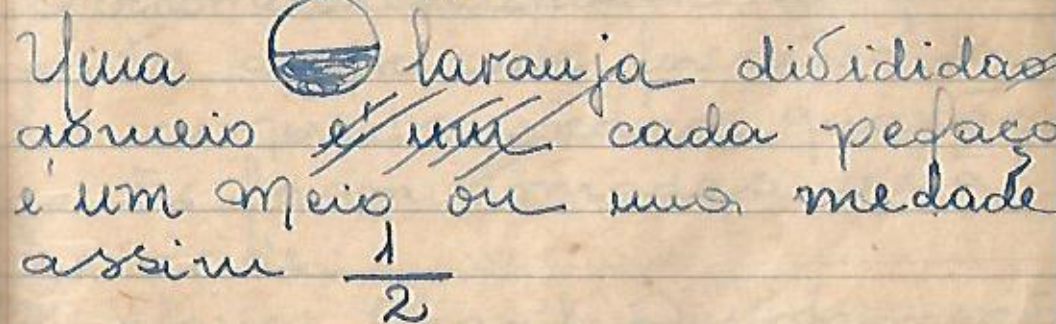 Uma laranja divididao
aomeio é um cada pedaço
é um meio ou uma medade
assim 1/2